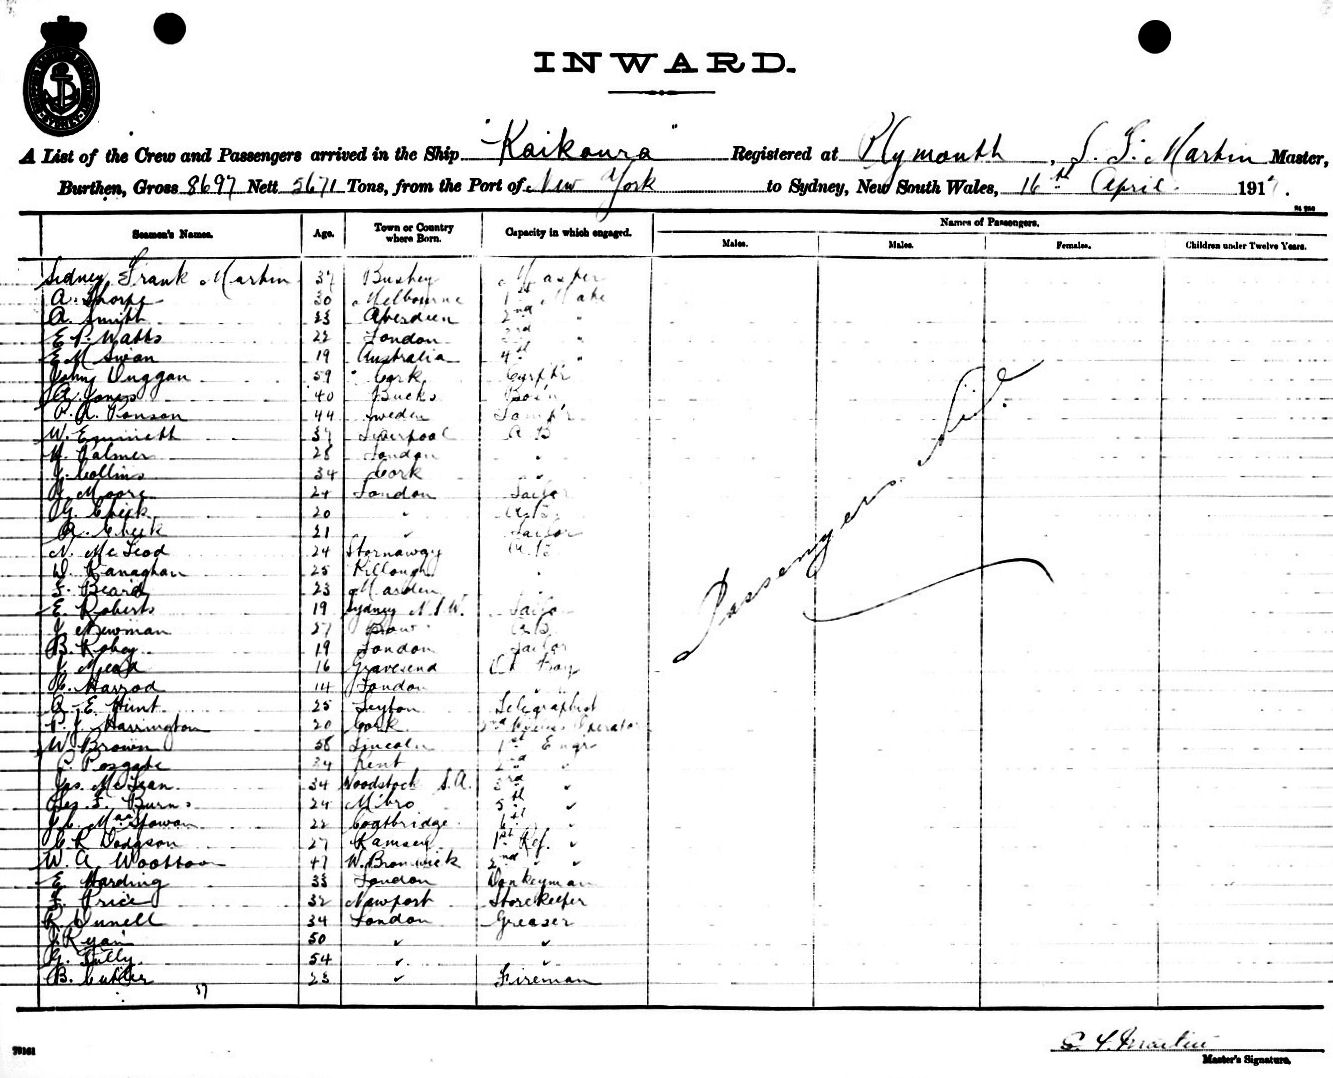 INWARD.
A List of the Crew and Passengers arrived in the Ship "Kaikoura" Registered at Plymouth, S. F. Martin Master,
Burthen, Gross 8697 Nett 5671 Tons, from the Port of New York to Sydney, New South Wales, 16th April 191
Names of Passengers.
Seamen's Names. Age. Town or Country where Born. Capacity in which engaged. Males. Males. Females. Children under Twelve Years.
Sidney Frank Martin 37 Bushey Master
A. Thorpe 30 Melbourne 1st Mate
A. Smith 23 Aberdeen 2nd "
E. P. Watts 22 London 3rd "
E. M. Swan 19 Australia 4th "
John Duggan 59 Cork Carptr
A. Jones 40 Bucks Bos'n
P. A. Ponson 44 Sweden Lampr
W. 37 Liverpool A B
H. Palmer 28 London "
J. Collins 34 Cork "
J. Moore 24 London Sailor
G. Cheek 20 " A.B.
A. Cheek 21 " Sailor
N. McLeod 24 Stornaway A.B
D. Ranaghan 25 Killough "
F. Beard 23 Marden "
E. Roberts 19 Sydney N.S.W. Sailor
J. Newman 27 Bow A.B.
B. Robey 19 London Sailor
J. Mead 16 Gravesend
C. Harrod 14 London "
A. E. Hunt 25 Leyton Telegraphist
P. J. Harrington 20 Cork 2nd Operator
W. Brown 58 Lincoln 1st Engr
C. Posgate 34 Kent 2nd "
Jas. McLean 34 Woodstock S.A. 3rd "
F. Burns 24 M'bro 5th "
J. C. MacGowan 22 Coatbridge 6th "
C. R. Dodgson 27 Ramsey 1st Ref. "
W. A. Wootton 47 W. Bromwick 2nd " "
E. Harding 33 London Donkeyman
F. Price 32 Newport Storekeeper
R. Dunell 34 London Greaser
J. Ryan 50 " "
G. Tully 54 " "
B. Cutler 23 " Fireman
37
Passengers Nil.
S. F. Martin
Master's Signature.
79161